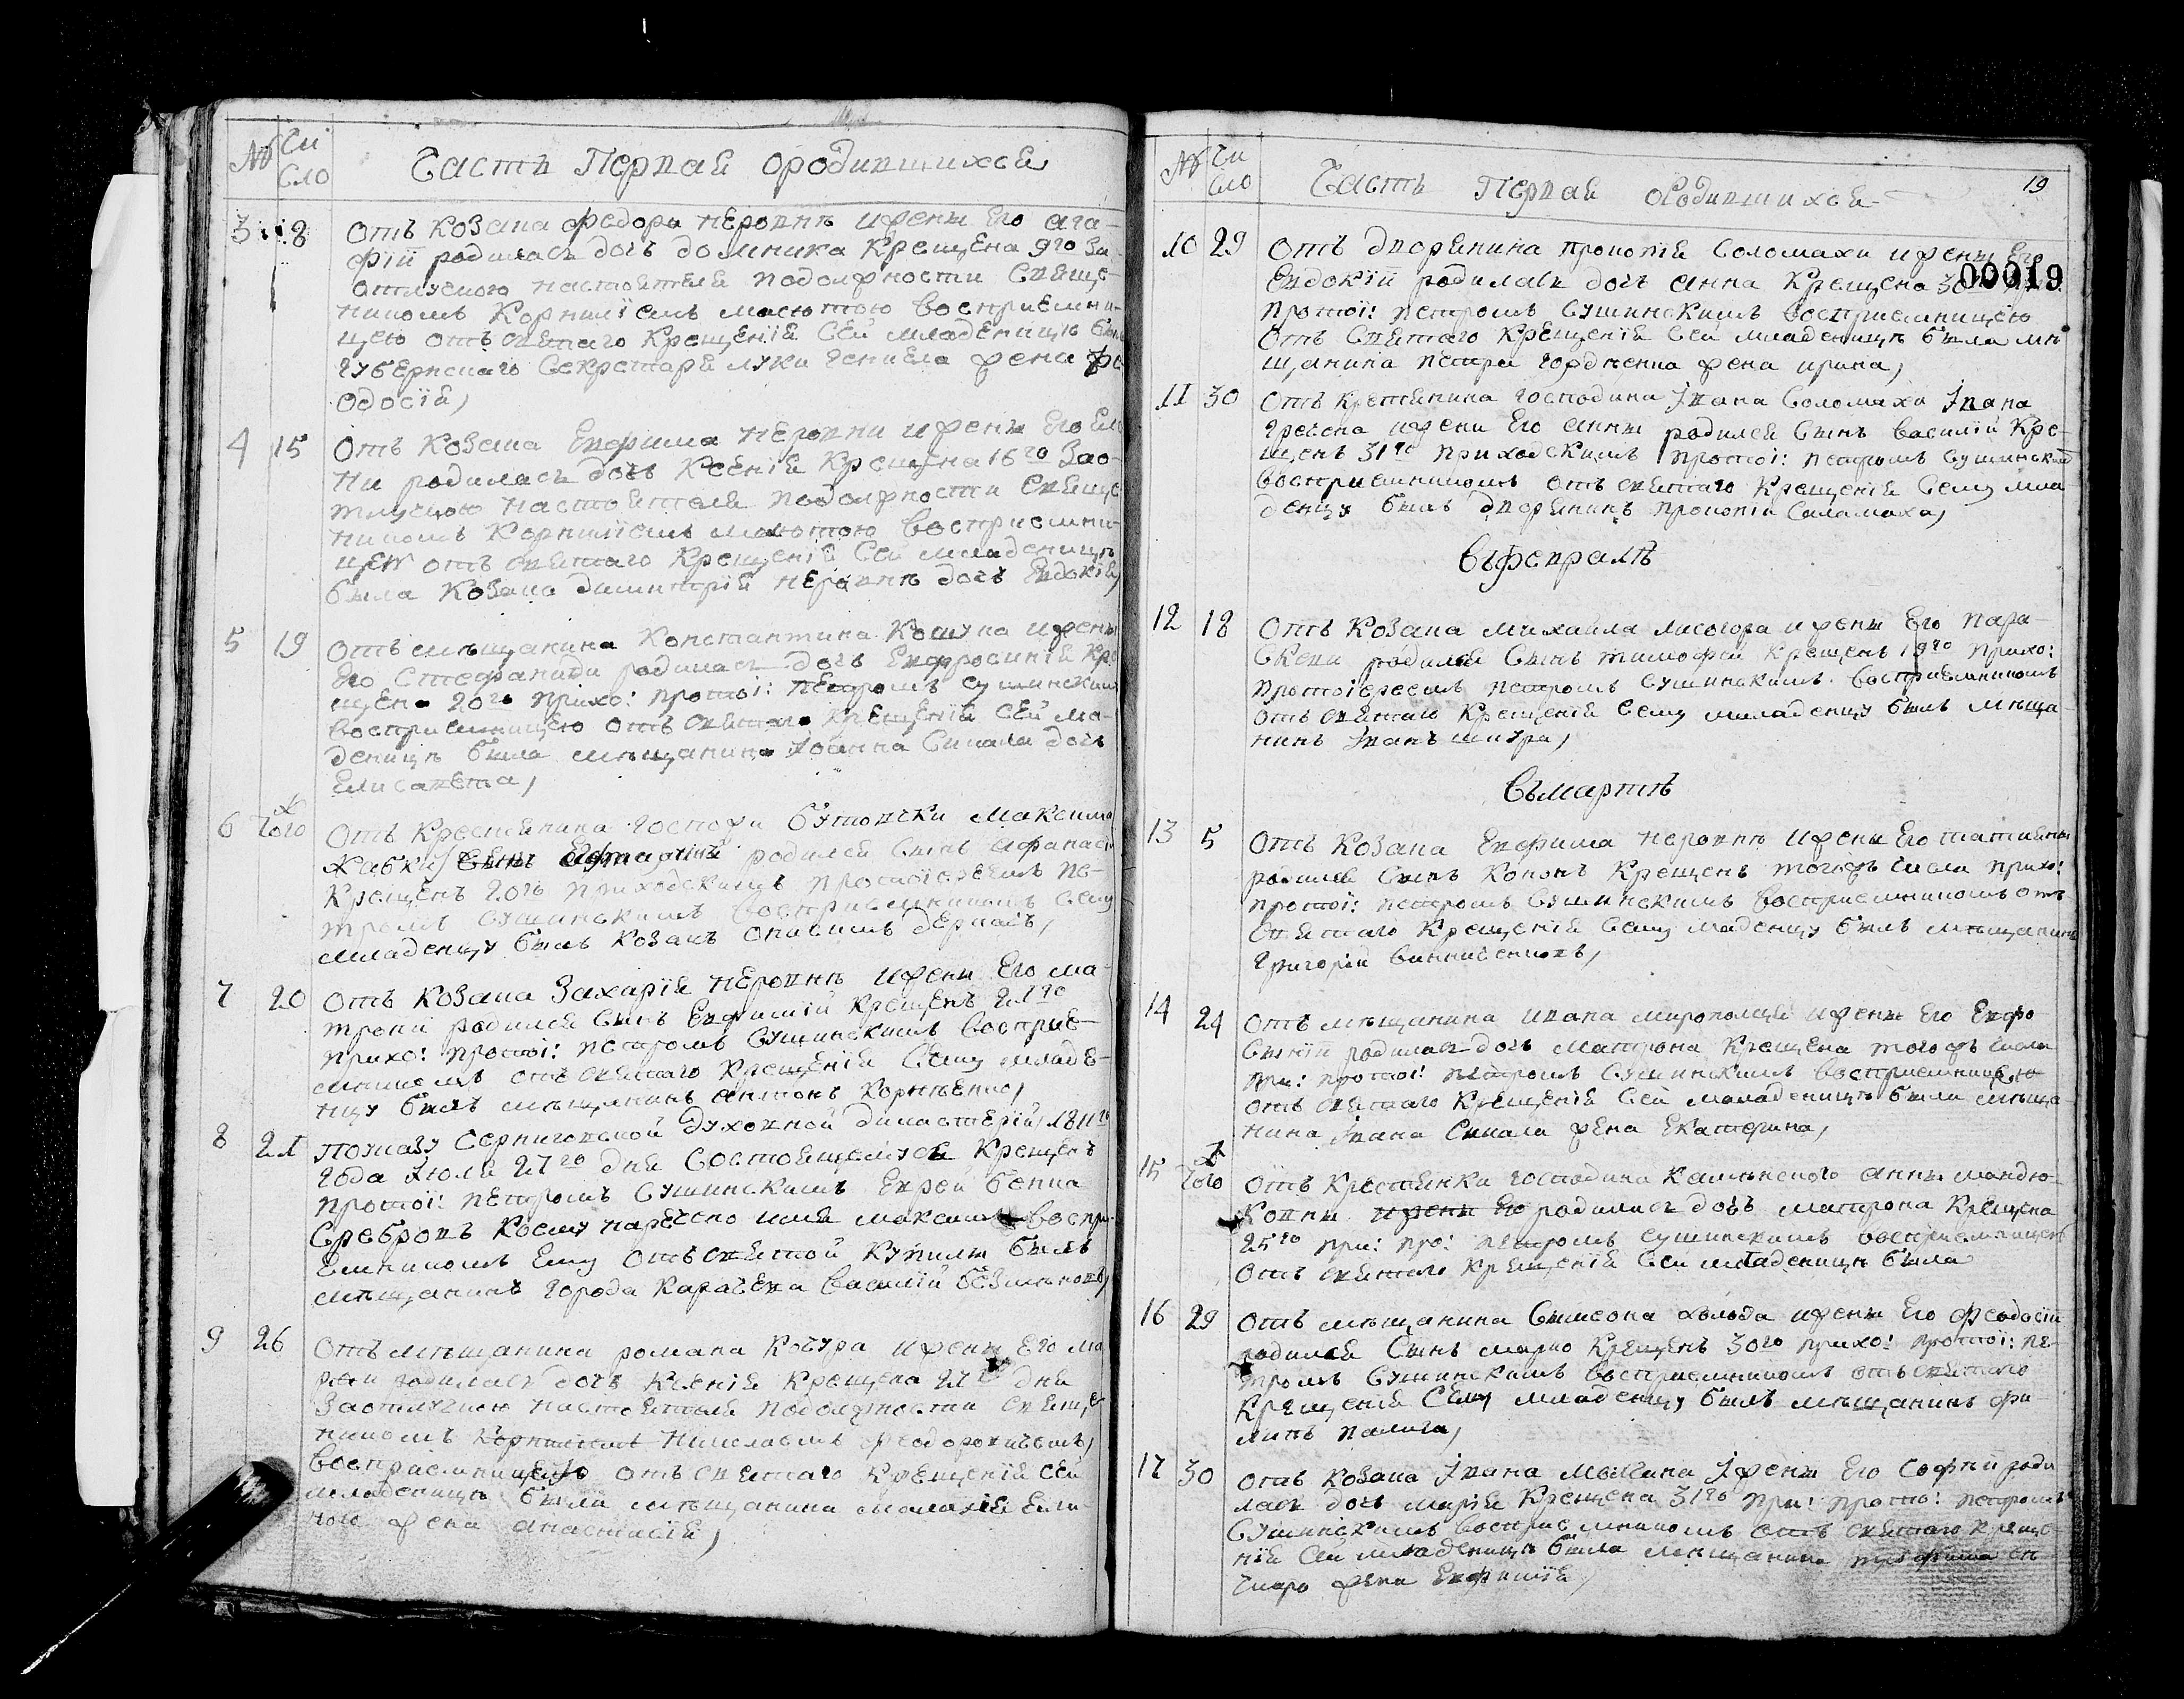 № Чи
сло
Часть Первая ородившихся
3 8 Отъ козака Федора Неровнѣ ижены Его Ага-
фіи родилась дочь Домника Крещена 9го За
отлучкою настоятеля подолжности Свяще-
никомъ Корниліемъ Масютою восприемни-
цею отъ святаго Крещенія Сей младеницѣ была
губернскаго Секретаря Луки жена Фе-
одосія,
4 15 Отъ козака Евфима Неровни ижены Его
ни родилась дочь Ксенія Крещена 16го Зао-
тлучкою настоятеля подолжности Свяще
никомъ Корниліемъ Масютою восприемни-
цею отъ святаго Крещенія Сей младеницѣ
была козака Димитрія Неровнѣ дочь Евдокія,
5 19 Отъ мѣщанина Константина ижены
Его Стефаниди родилась дочь Евфросинія Кре
щена 20го прихо: протоі: петромъ Сушинскимъ
восприемницею отъ святаго Крещенія Сей мла-
деницѣ была мѣщанина Іоанна Сикала дочь
Елисавета,
6 того Отъ крестянина господи Максима
родился Сынъ Афанасій
Крещенъ 20го приходскимъ протоіереемъ пе-
тромъ Сушинскимъ восприемникомъ Сему
младенцу былъ козакъ Онисимъ Деркачъ,
7 20 Отъ козака Захарія Неровнѣ ижены Его Ма-
трони родился Сынъ Евфимій Крещенъ 21го
прихо: протоі: петромъ Сушинскимъ восприе-
мникомъ отъ святаго Крещенія Сему младе-
нцу былъ мѣщанинъ Антонъ Корнѣенко,
8 21 Поуказу Черниговской Духовной Дикастеріи, 1811го
года Іюля 27го дня Состоящемуся Крещенъ
протоі: петромъ Сушинскимъ Еврей
Сребровъ коему наречено имя Максимъ воспри
емникомъ Ему отъ святой купили былъ
мѣщанинъ города Карачева Василій
9 26 Отъ мѣщанина Романа Кочура ижены Его Ма
ріи родилась дочь Ксенія Крещена 27го дня
Заотлучкою настоятеля подолжности Свяще
никомъ Корниліемъ Николаемъ Феодоровичемъ,
восприемницею отъ святаго Крещенія Сей
младеницѣ была мѣщанина Малахія
жена Анастасія,
№ Чи
сло
Часть Первая ородившихся 19
00019
10 29 Отъ дворянина Прокопія Соломахи ижены Его
Евдокіи родилась дочь Анна Крещена 30го
протоі: петромъ Сушинскимъ восприемницею
отъ Святаго Крещенія Сей младеницѣ была мѣ
щанина Петра Гордѣенка жена Ирина,
11 30 Отъ крестянина господина Ивана Соломахи Ивана
ижени Его Анны родился Сынъ Василій Кре-
щенъ 31го приходскимъ протоі: петромъ Сушинскимъ
восприемникомъ отъ святаго Крещенія Сему мла
денцу былъ дворянинъ Прокопій Саламаха,
Въфевралѣ
12 18 Отъ козака Михаила Лисогора ижены Его Пара-
скеви родился Сынъ Тимофей Крещенъ 19го прихо:
протоіереемъ петромъ Сушинскимъ восприемникомъ
отъ святаго Крещенія Сему младенцу былъ мѣща-
нинъ Іванъ
Въмартѣ
13 5 Отъ козака Евфима Неровнѣ ижены Его Татияны
родился Сынъ Кононъ Крещенъ тогожъ числа прихо:
протоі: петромъ Сушинскимъ восприемникомъ отъ
святаго Крещенія Сему маденцу былъ мѣщанинъ
Григорій
14 24 Отъ мѣщанина Ивана ижены Его Евфро
синіи родилась дочь Матрона Крещена тогожъ числа
при: протоі: петромъ Сушинскимъ восприемницею
отъ святаго Крещенія Сей маладеницѣ была мѣща-
нина Івана Сикала жена Екатерина,
15 того Отъ крестянки господина Каменского Анны
ижены Его родилась дочь Матрона Крещена
25го при: про: петромъ Сушинскимъ восприемницею
отъ святаго Крещенія Сей младеницѣ была
16 29 Отъ мѣщанина Симеона ижены Его Феодосіи
родился Сынъ Марко Крещенъ 30го прихо: протоі: пе-
тромъ Сушинскимъ восприемникомъ отъ святаго
Крещенія Сему младенцу былъ мѣщанинъ Фи-
липъ Палига,
17 30 Отъ козака Івана іжены Его Софиіи роди
лась дочь Марія Крещена 31го при: протоі: петромъ
Сушинскимъ восприемникомъ отъ святаго Креще-
нія Сей младеницѣ была мѣщанина
жена Евфимія,